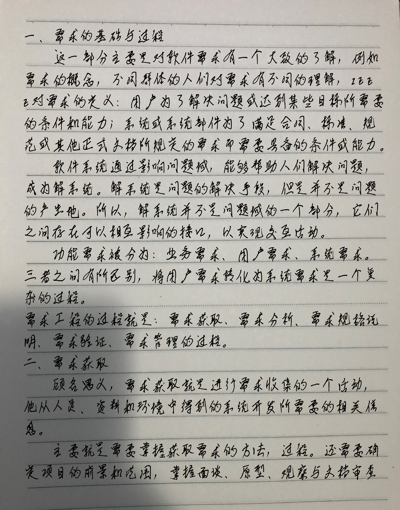 一、需求的基础与过程
这一部分主要是对软件需求有一个大致的了解，例如
需求的概念，不同群体的人们对需求有不同的理解，IEE
E对需求的定义：用户为了解决问题或达到某些目标所需要
的条件和能力；系统或系统部件为了满足合同、标准、规
范或其他正式文档所规定的需求而需要具备的条件或能力。
软件系统通过影响问题域，能够帮助人们解决问题，
成为解系统。解系统是问题的解决手段，但是并不是问题
的产生地。所以，解系统并不是问题域的一个部分，它们
之间存在可以相互影响的接口，以实现交互活动。
功能需求被分为：业务需求、用户需求、系统需求。
三者之间有所区别，将用户需求转化为系统需求是一个复
杂的过程。
需求工程的过程就是：需求获取、需求分析、需求规格说
明、需求验证、需求管理的过程。
二、需求获取
顾名思义，需求获取就是进行需求收集的一个活动，
他从人员、资料和环境中得到的系统开发所需要的相关信
息。
主要就是需要掌握获取需求的方法，过程。还需要确
定项目的前景和范围，掌握面谈、原型、观察与文档审查